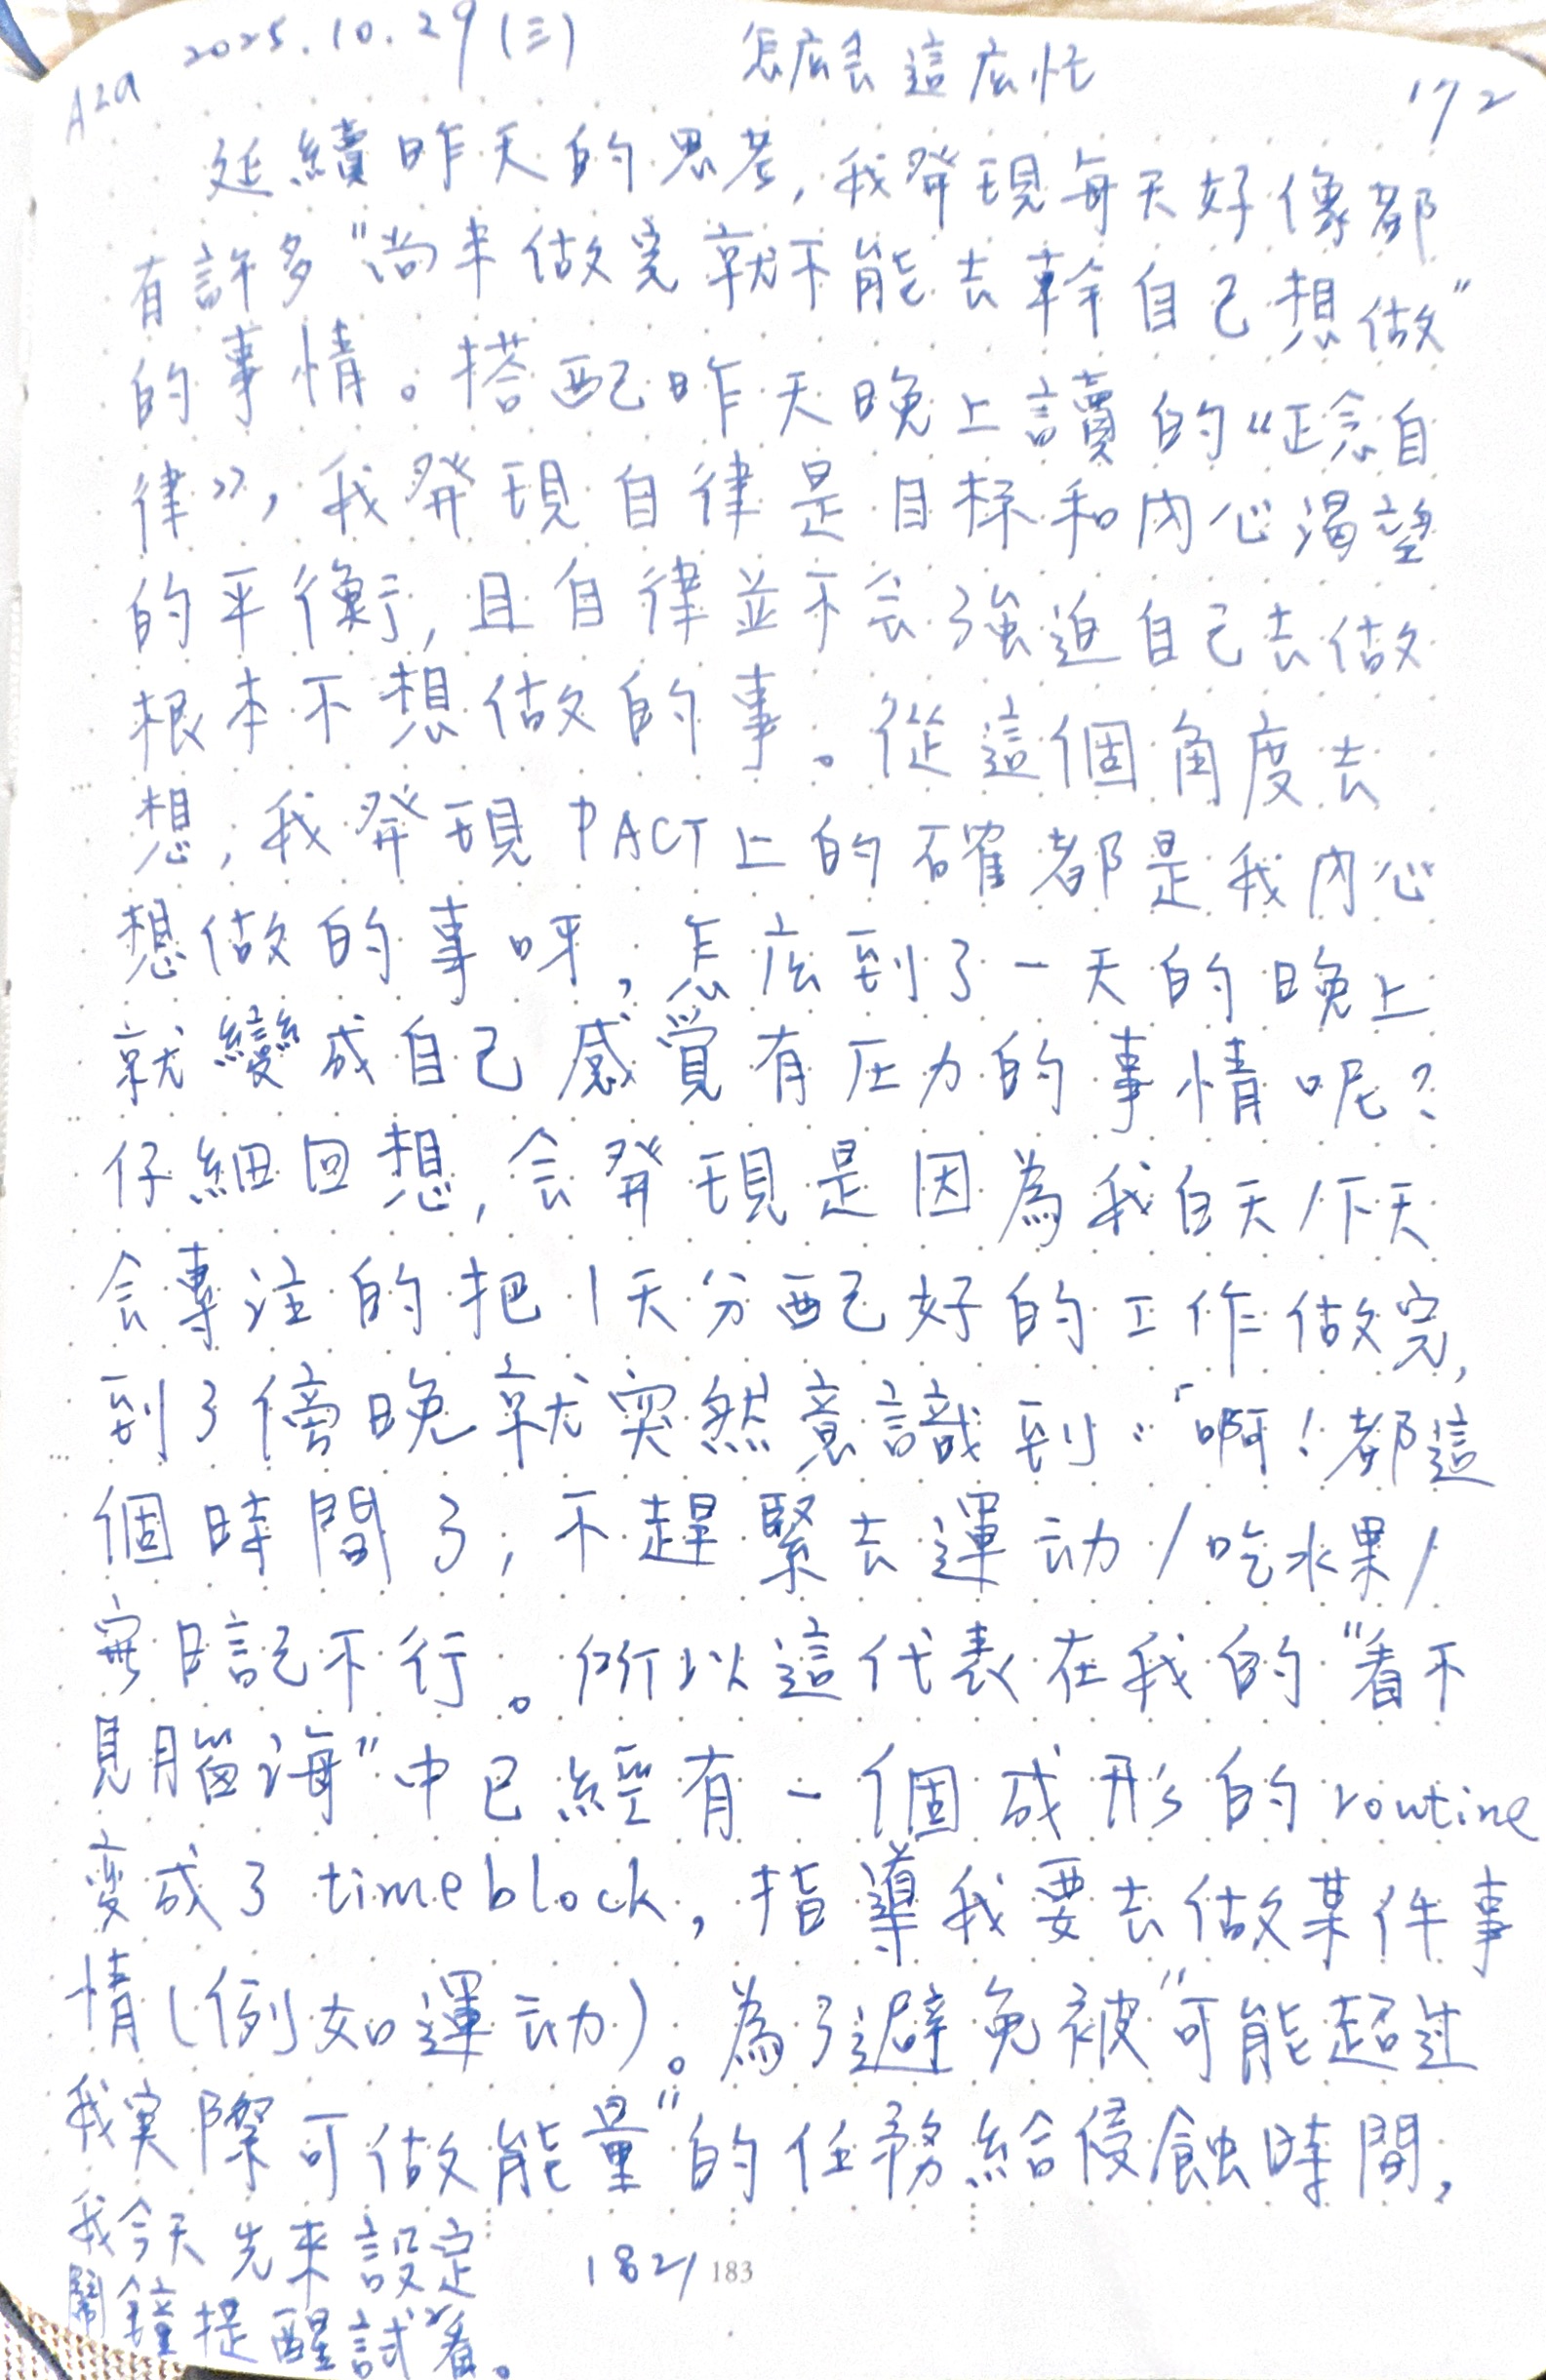 A2a 2025.10.29(三) 怎庅会這庅忙 172
延續昨天的思考,我發現每天好像都
有許多"尚未做完就不能去幹自己想做"
的事情。搭配昨天晚上讀的"正念自
律",我發現自律是目标和內心渴望
的平衡,且自律並不会強迫自己去做
根本不想做的事。從這個角度去
想,我發現PACT上的確都是我內心
想做的事呀,怎庅到了一天的晚上
就變成自己感覺有压力的事情呢?
仔細回想,会發現是因為我白天/下天
会專注的把1天分配好的工作做完,
到了傍晚就突然意識到:「啊!都這
個時間了,不趕緊去運动/吃水果/
寫日記不行。所以這代表在我的"看不
見腦海"中已經有一個成形的routine
变成了timeblock,指導我要去做某件事
情(例如運动)。為了避免被"可能超过
我实際可做能量"的任務給侵蝕時間,
我今天先來設定
鬧鐘提醒試看。
182/183